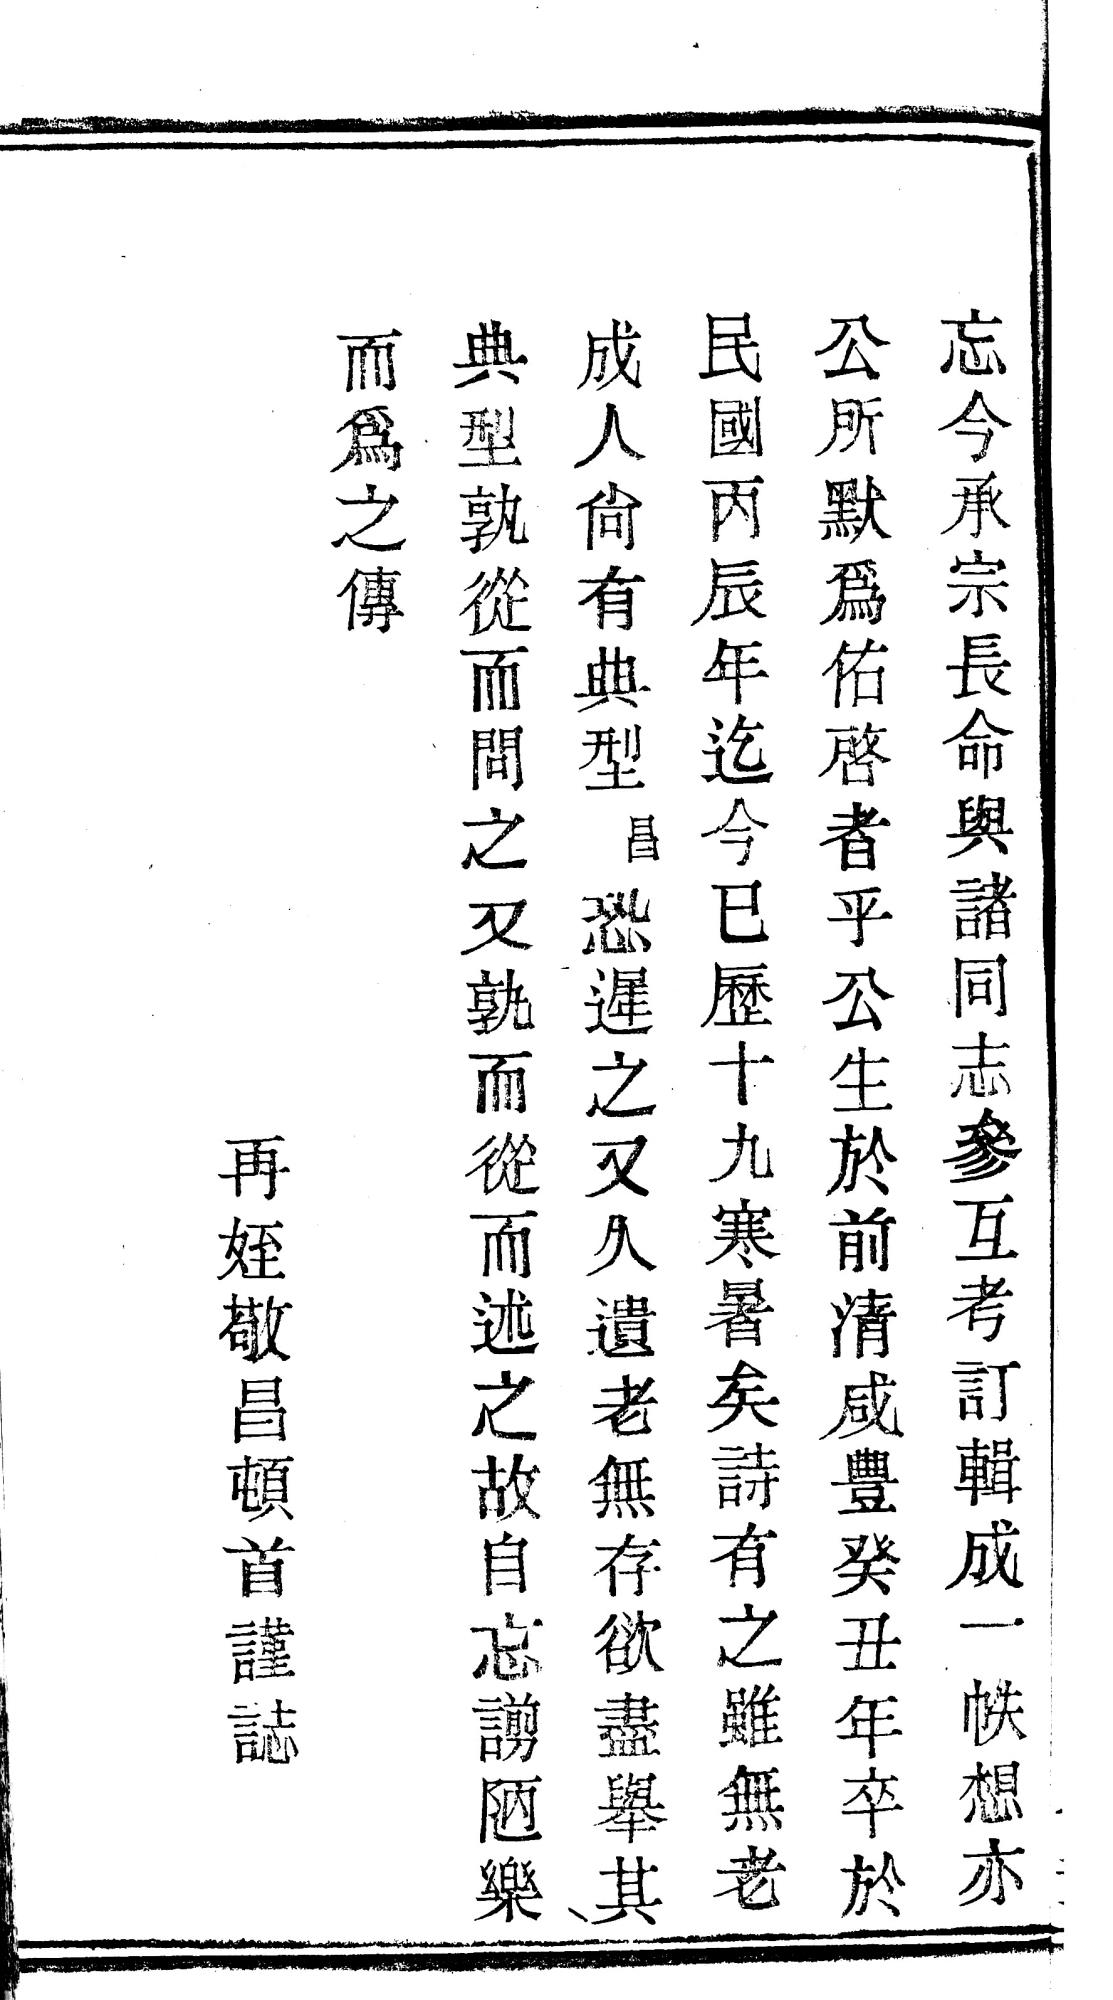 忘今承宗長命與諸同志參互考訂輯成一帙想亦
公所默爲佑啓者乎公生於前清咸豐癸丑年卒於
民國丙辰年迄今已歷十九寒暑矣詩有之雖無老
成人尙有典型昌恐遲之又久遺老無存欲盡舉其
典型孰從而問之又孰而從而述之故自忘謭陋樂
而爲之傳
再姪敬昌頓首謹誌